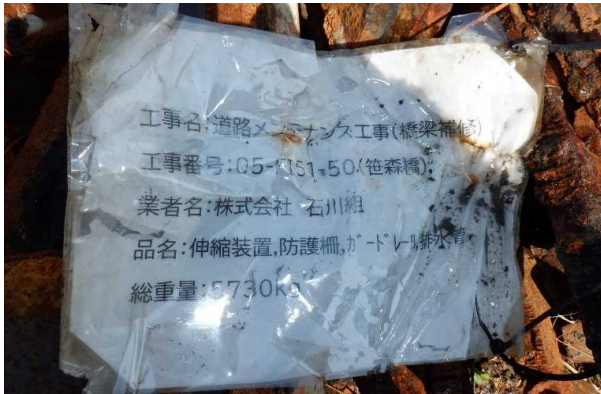 工事名:道路メンテナンス工事(橋梁補修)
工事番号:05-5151-50(笹森橋)
業者名:株式会社 石川組
品名:伸縮装置,防護柵,ガードレール,排水管
総重量:5730kg